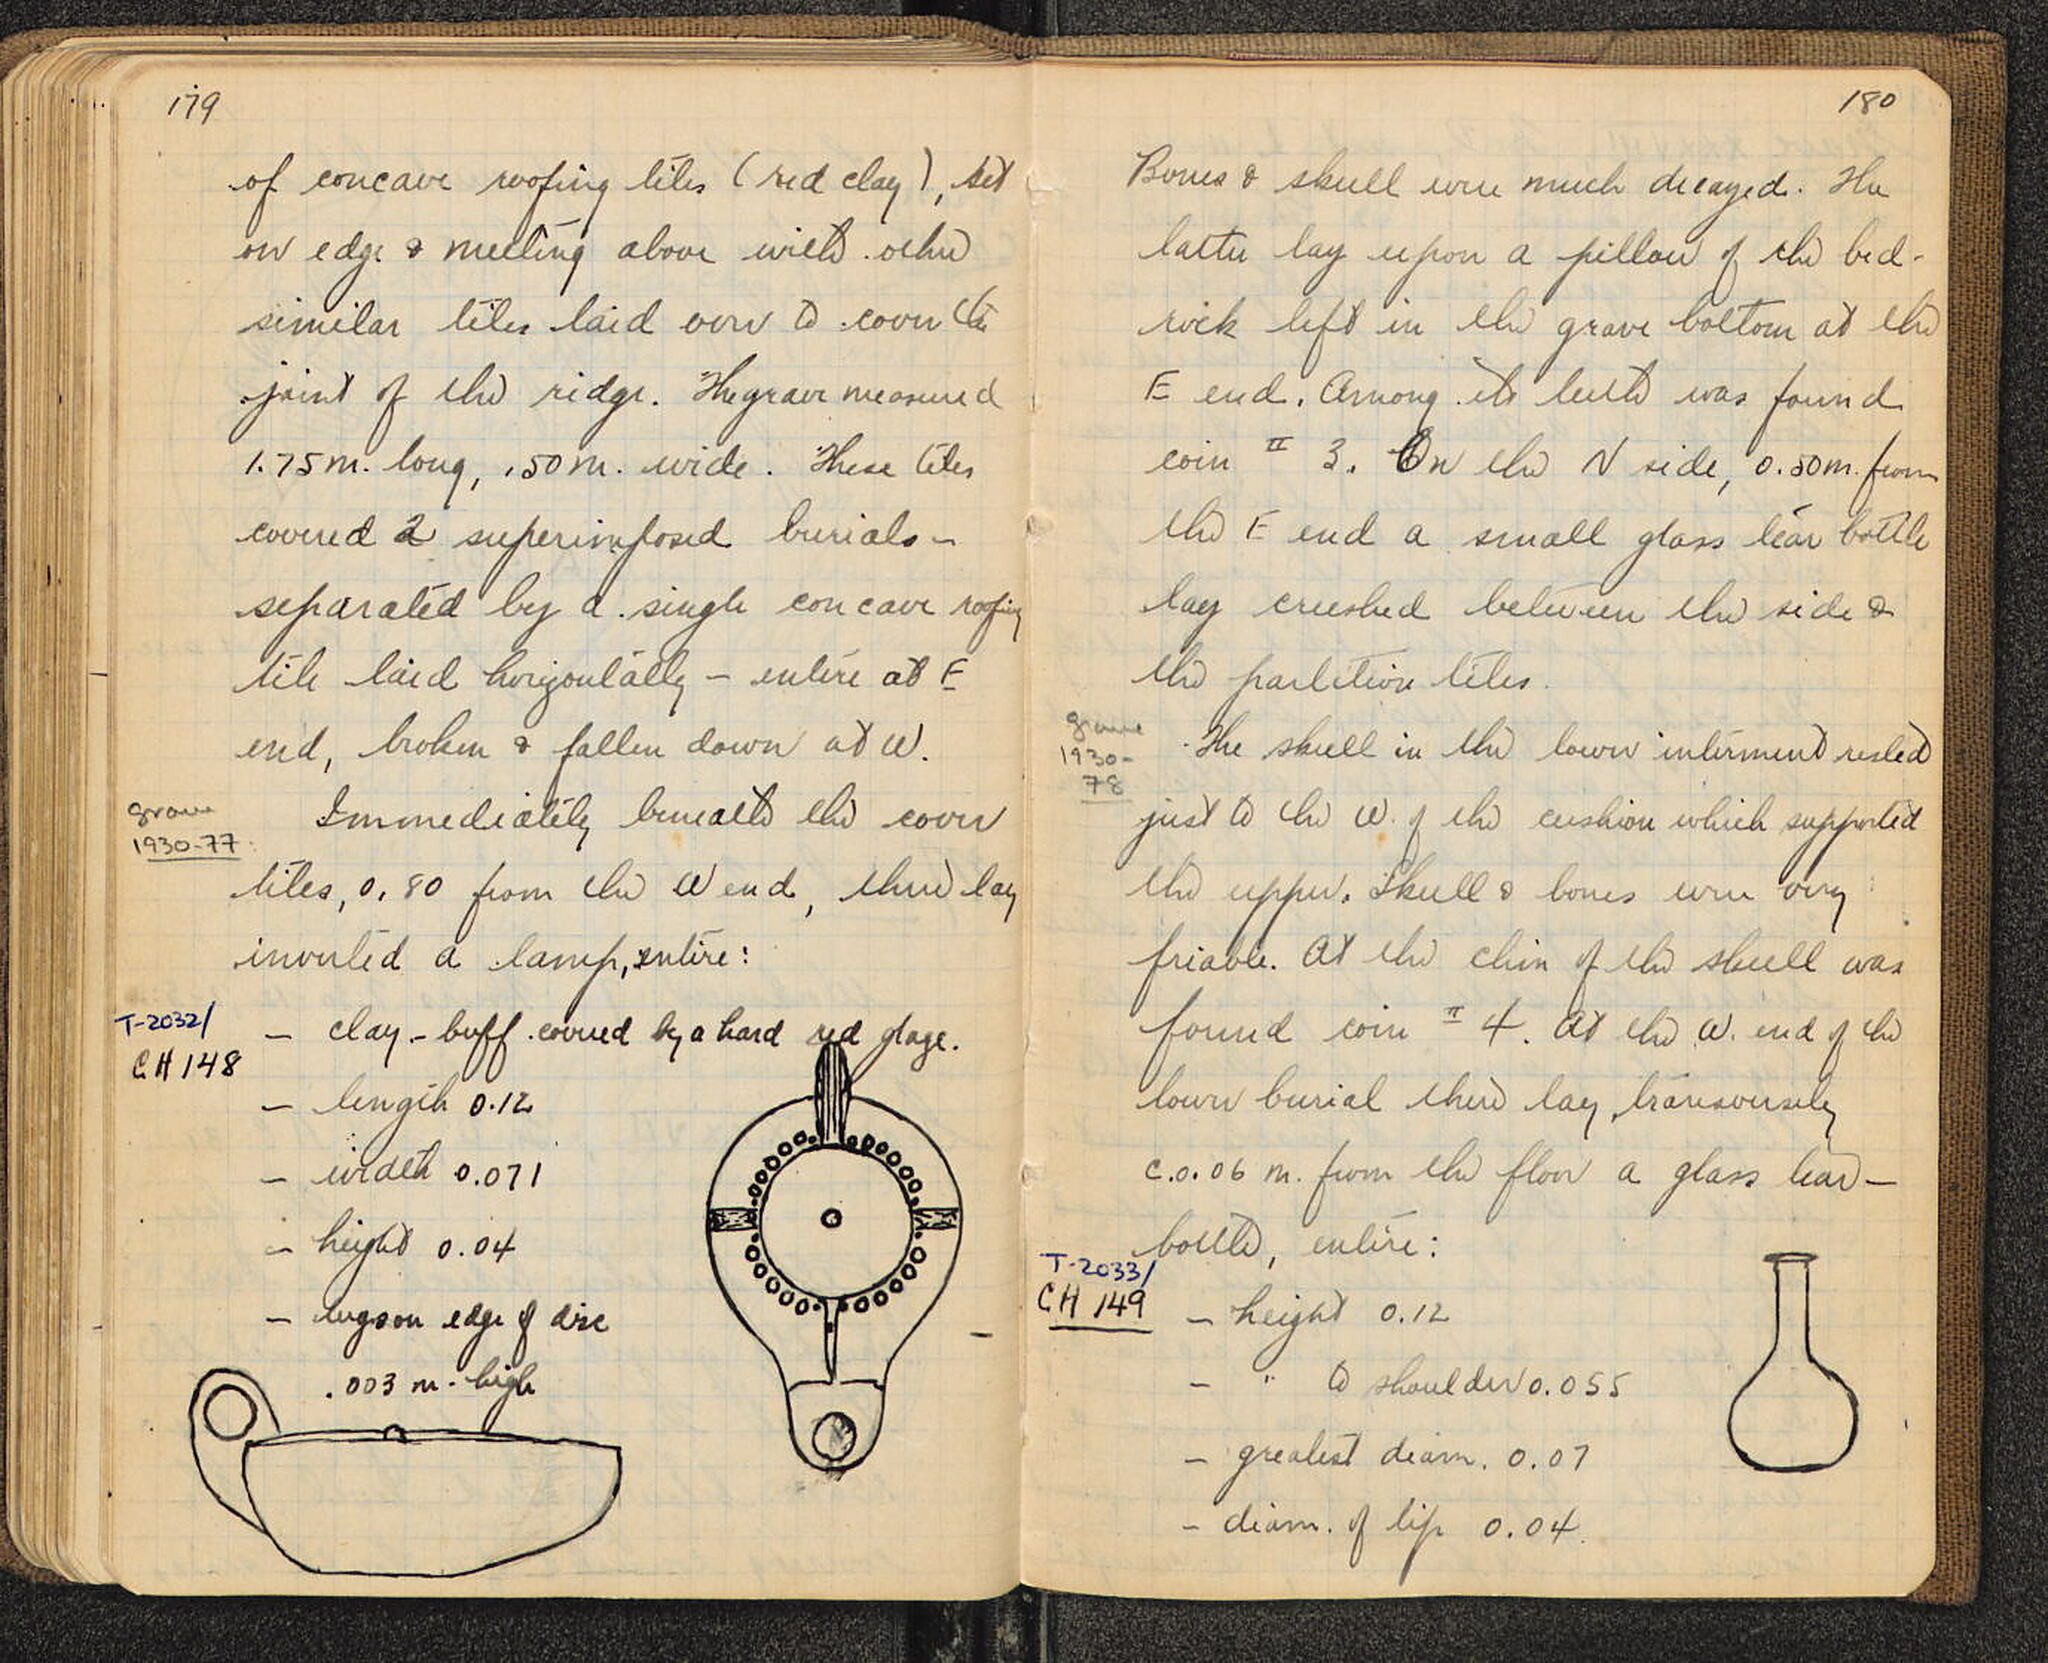 179
of concave roofing tiles (red clay), set
on edge & meeting above with other
similar tiles laid over to cover the
joint of the ridge. The grave measured
1.75 m. long, .50 m. wide. These tiles
covered 2 superimposed burials -
separated by a single concave roofing
tile laid horizontally - entire at E
end, broken & fallen down at W.
grave
1930-77
Immediately beneath the cover
tiles, 0.80 from the W end, there lay
inverted a lamp, entire:
T-2032/
CH 148
- clay - buff covered by a hard red glaze.
- length 0.12
- width 0.071
- height 0.04
- lugs on edge of disc
.003 m. high
180
Bones & skull were much decayed. The
latter lay upon a pillow of the bed-
rock left in the grave bottom at the
E end. Among its teeth was found
coin II 3. On the N side, 0.50 m. from
the E end a small glass tear bottle
lay crushed between the side &
the partition tiles.
grave
1930-
78
The skull in the lower interment rested
just to the W. of the cushion which supported
the upper. Skull & bones were very
friable. At the chin of the skull was
found coin II 4. At the W. end of the
lower burial there lay, transversely
c. 0.06 m. from the floor a glass tear-
bottle, entire:
T-2033/
CH 149
- height 0.12
- " to shoulder 0.055
- greatest diam. 0.07
- diam. of lip 0.04